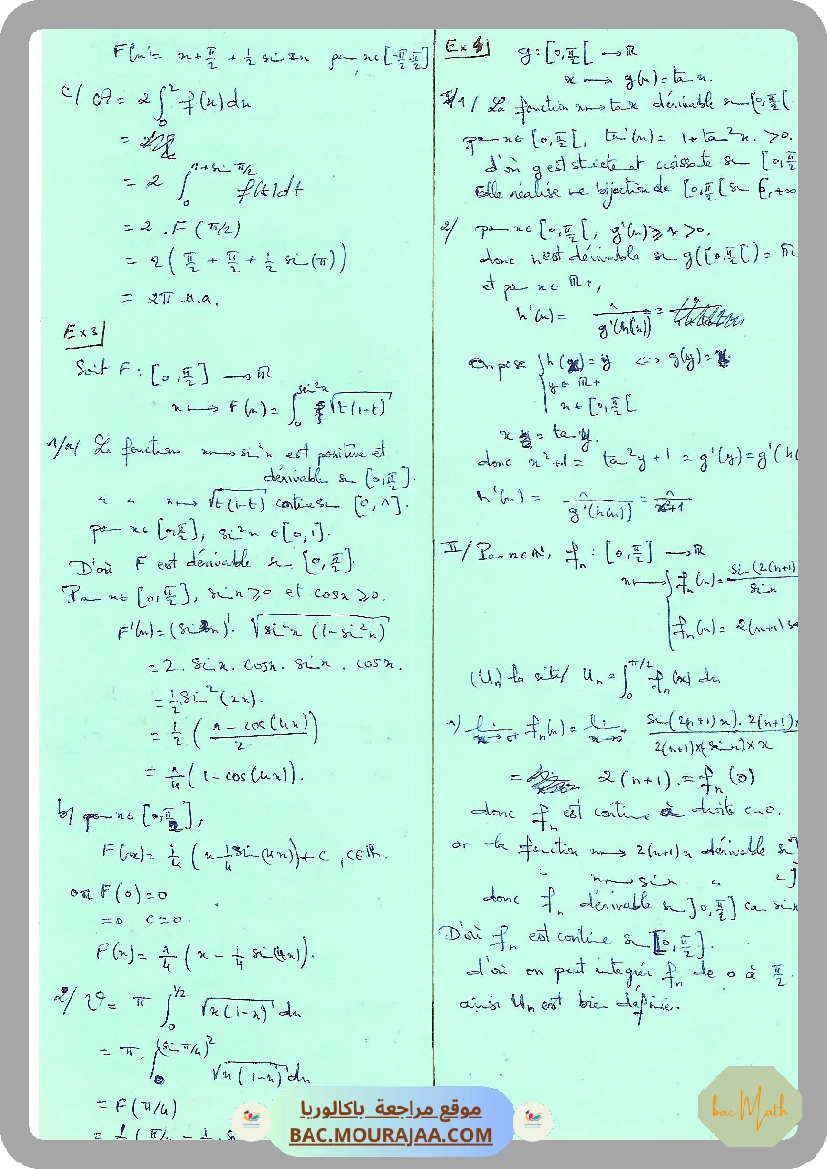 F(x) = x + π/2 + 1/2 sin 2x pour x ∈ [-π/2, π/2]
c/ A = 2 ∫₀² f(x) dx
= 2 ∫₀^(1+sin π/2) f(t) dt
= 2 . F(π/2)
= 2 ( π/2 + π/2 + 1/2 sin(π) )
= 2π u.a.
Ex 3
Soit F : [0, π/2] → ℝ
x ↦ F(x) = ∫₀^(sin²x) √(t(1-t))
1/a/ La fonction x ↦ sin²x est positive et
dérivable sur [0, π/2].
" " x ↦ √(t(1-t)) continue sur [0, 1].
pour x ∈ [0, π/2], sin²x ∈ [0, 1].
D'où F est dérivable sur [0, π/2].
Pour x ∈ [0, π/2], sin x ≥ 0 et cos x ≥ 0.
F'(x) = (sin²x)' . √(sin²x (1 - sin²x))
= 2 . sin x . cos x . sin x . cos x.
= 1/2 sin²(2x).
= 1/2 ( (1 - cos(4x))/2 )
= 1/4 (1 - cos(4x)).
b/ pour x ∈ [0, π/2],
F(x) = 1/4 ( x - 1/4 sin(4x)) + c , c ∈ ℝ.
or F(0) = 0
=0 c = 0.
F(x) = 1/4 ( x - 1/4 sin(4x)).
2/ V = π ∫₀^(1/2) √(x(1-x)) dx
= π . ∫₀^((sin π/4)²) √(x(1-x)) dx
= F(π/4)
Ex 4 g : [0, π/2[ → ℝ
x ↦ g(x) = tan x.
I/1/ La fonction x ↦ tan x dérivable sur [0, π/2[
pour x ∈ [0, π/2[, tan'(x) = 1 + tan²x. > 0.
d'où g est strictement croissante sur [0, π/2
Elle réalise une bijection de [0, π/2[ sur [0, +∞
2/ pour x ∈ [0, π/2[, g'(x) ≥ 1 > 0.
donc h est dérivable sur g([0, π/2[) = ℝ
et pour x ∈ ℝ+,
h'(x) = 1/g'(h(x)) =
On pose { h(x) = y ⟺ g(y) = x
y ∈ ℝ+
x ∈ [0, π/2[
x = tan y.
donc x² + 1 = tan²y + 1 = g'(y) = g'(h(
h'(x) = 1/g'(h(x)) = 1/(x²+1)
II/ Pour n ∈ ℕ, fₙ : [0, π/2] → ℝ
x ↦ { fₙ(x) = sin(2(n+1) / sin x
fₙ(x) = 2(n+1) s
(Uₙ) la suite / Uₙ = ∫₀^(π/2) fₙ(x) dx
1/ lim x→0+ fₙ(x) = lim x→0+ sin(2(n+1)x) . 2(n+1) / 2(n+1)×(sin x)×x
= 2(n+1). = fₙ(0)
donc fₙ est continue à droite en 0.
or la fonction x ↦ 2(n+1)x dérivable sur ]
" x ↦ sin x " "]
donc fₙ dérivable sur ]0, π/2] car sin x
D'où fₙ est continue sur [0, π/2].
d'où on peut intégrer fₙ de 0 à π/2.
ainsi Uₙ est bien définie.
موقع مراجعة باكالوريا
BAC.MOURAJAA.COM
bac Math